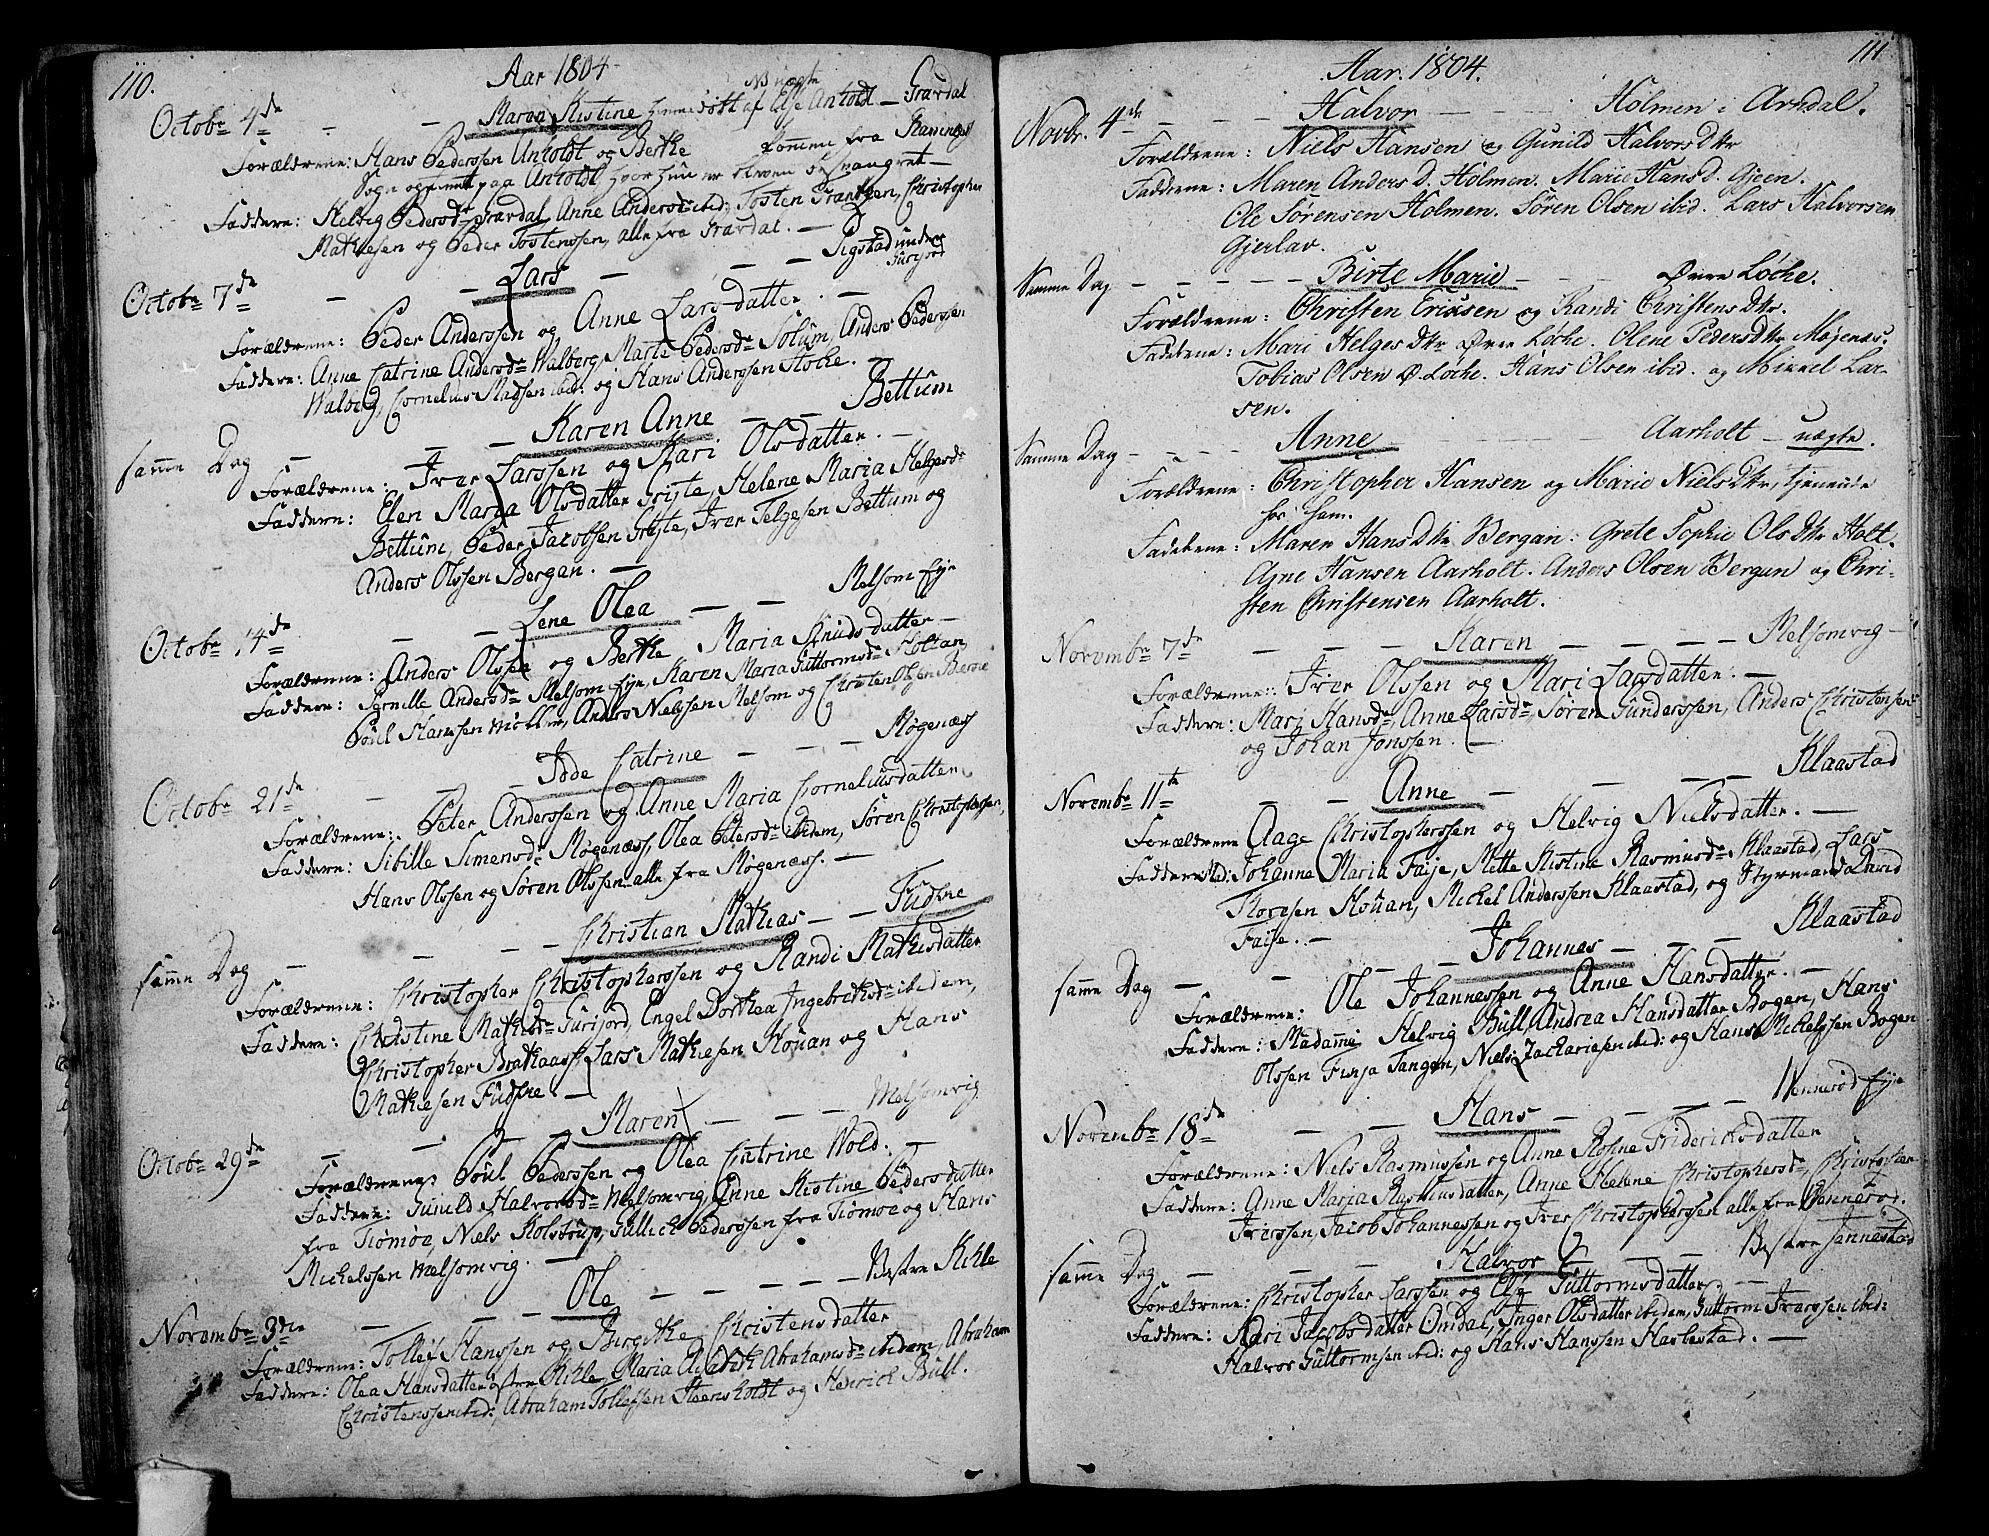 110.
Aar 1804
Octobr 4de - - Maren Kistine - af Else Anholdt - Gravdal
NB uægte
Forældrene: Hans Pedersen Anholdt og Berthe kommen fra
Sogn og tient paa Anholdt hvor hun er bleven besvangret -
Faddere: Helvig Pedersdr Gravdal, Anne Andersdr ibid: Tosten Frantzen, Christopher
Mathiesen og Peder Tostenssen, alle fra Gravdal. -
Octobr 7de - - Lars - - - Sigstad under
Furijord
Forældrene: Peder Anderssen og Anne Larsdatter. -
Faddere: Anne Catrine Andersdr Walberg, Marte Pedersdr Solum, Anders Pederssen
Walberg, Cornelius Madsen ibid: og Hans Anderssen Stoke. -
samme Dag - - - Karen Anne - - Bettum
Forældrene: Iver Larssen og Kari Olsdatter. -
Faddere: Elen Maria Olsdatter Freste, Helene Maria Helgesdr
Bettum, Peder Jacobsen Freste, Iver Helgesen Bettum og
Anders Olssen Bergan. -
Octobr 14de - - Lene Olea - - Melsom Eye
Forældrene: Anders Olssen og Berthe Maria Knudsdatter -
Faddere: Pernille Andersdr Melsom Eye, Karen Maria Guttormsdr Holtan
Poul Hanssen Møller, Anders Nielssen Melsom og Christen Olssen Berge
Octobr 21de - - Ide Catrine - - - Møgenæss
Forældrene: Peter Anderssen og Anne Maria Corneliusdatter
Faddere: Sibille Simensdr Møgenæss, Olea Petersdr ibidem, Søren Christophersen,
Hans Olssen og Søren Olssen alle fra Møgenæss. -
samme Dag - - - - Christian Mathias - - Fudsre
Forældrene: Christopher Christopherssen og Randi Mathisdatter
Faddere: Christine Mathisdr Furijord, Engel Dorthea Ingebrethsdr ibidem,
Christopher Brathaass, Lars Mathiesen Houan og Hans
Mathiesen Fudsre. -
Octobr 29de - - Maren - - - Melsomvig
Forældrene: Poul Pederssen og Olea Catrine Wold. -
Faddere: Gunild Halvorsdr Melsomvig, Anne Kistine Pedersdatter
fra Tiømøe, Niels Holstrup, Gullich Pederssen fra Tiømøe og Hans
Michelssen Melsomvig. -
Novembr 3die - - - Ole - - - - Vestre Kihle
Forældrene: Tollef Hanssen og Birgithe Christensdatter
Faddere: Olea Hansdatter Østre Kihle, Maria Abrahamsdr ibidem, Abraham
Christenssen ibid:, Abraham Tollefsen Steensholdt og Henrich Bull.
111
Aar. 1804.
Novbr. 4de - - - Halvor - - - Holmen i Arndal.
Forældrene: Niels Hansen og Gunild HalvorsDtr
Fadderne: Maren AndersD. Holmen. Marie HansD. Gjeen.
Ole Sørensen Holmen. Søren Olsen ibid. Lars Halvorsen
Gjerlav.
Samme Dag - - - - - Birte Marie - - - Øvre Løche.
Forældrene: Christen Ericksen og Randi ChristensDtr.
Fadderne: Mari HelgesDtr Øvre Løche. Olene PedersDtr Møjenæs.
Tobias Olsen Ø. Løche. Hans Olsen ibid. og Mikkel Lar-
sen.
Samme Dag - - - - Anne - - - Aarholt - uægte.
Forældrene: Christopher Hansen og Marie NielsDtr, tjenende
hos ham.
Fadderne: Maren HansDtr Bergan: Grete Sophie OlsDtr Holt.
Ajne Hansen Aarholt. Anders Olsen Bergan og Chri-
sten Christensen Aarholt.
Novembr 7de - - - Karen - - - - Melsomvig -
Forældrene: Iver Olssen og Mari Larsdatter. -
Faddere: Mari Hansdr, Anne Larsdr, Søren Gunderssen, Anders Christensen
og Johan Jonssen. -
Novembr 11te - - Anne - - - - Klaastad
Forældrene Aage Christopherssen og Helvig Nielsdatter. -
Faddere: Mad: Johanne Maria Faije, Mette Kistine Rasmusdr Klaastad, Lars
Thoresen Houan, Michel Anderssen Klaastad, og Styrmand David
Faije. -
samme Dag - - - - Johannes - - - Klaastad
Forældrene: Ole Johannessen og Anne Hansdatter. -
Faddere: Madamme Helvig Bull, Andrea Hansdatter Bogen, Hans
Olssen Finja Tangen, Niels Zachariesen ibid: og Hans Michelssen Bogen
Novembr 18de - - Hans - - - - Vennerød Eye
Forældrene: Niels Rasmussen og Anne Sophie Friderichsdatter
Faddere: Anne Maria Rasmusdatter, Anne Helene Christophersdr, Christopher
Iverssen, Jacob Johannessen og Iver Christopherssen alle fra Vennerød.
samme Dag - - - - Halvor - - - Vestre Jennestad
Forældrene: Christopher Larssen og Else Guttormsdatter -
Faddere: Kari Jacobsdatter Omdal, Inger Olsdatter ibidem, Guttorm Iverssen ibid:
Halvor Guttormsen ibid: og Hans Hanssen Harlestad. -